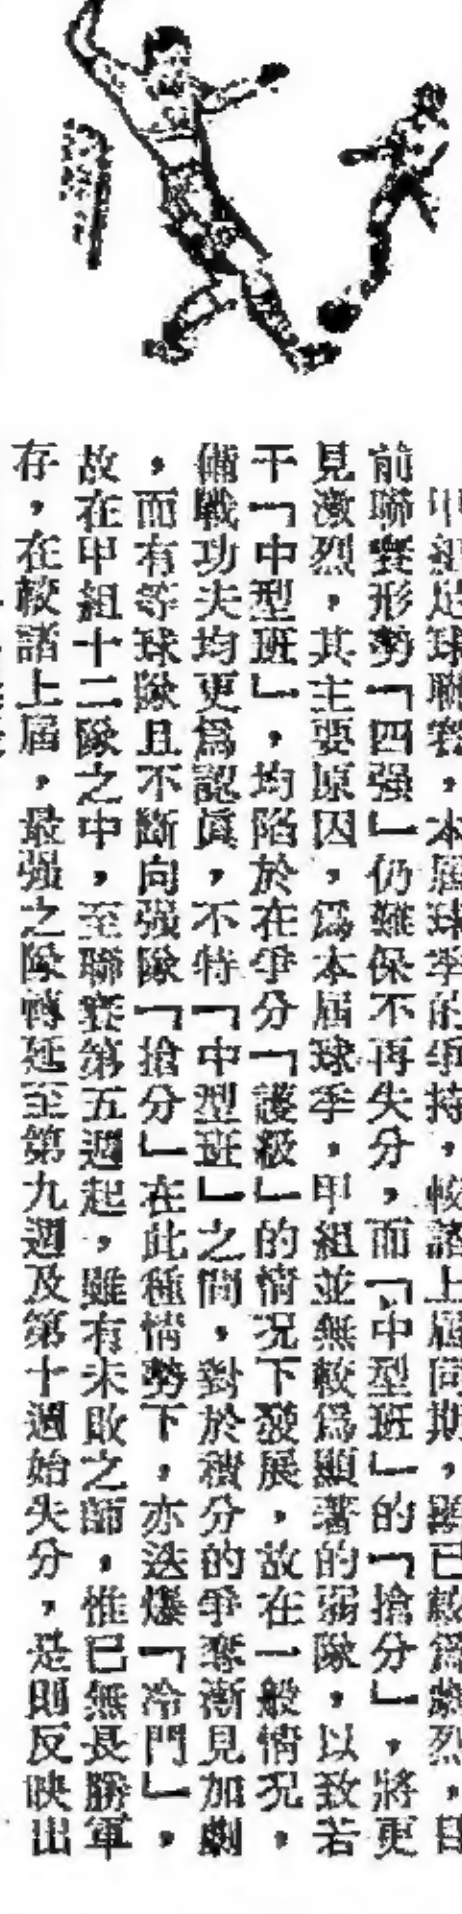 甲組足球聯賽，本屆球季的爭持，較諸上屆同期，顯已較爲激烈，目
前聯賽形勢「四强」仍難保不再失分，而「中型班」的「搶分」，將更
見激烈，其主要原因，爲本屆球季，甲組並無較爲顯著的弱隊，以致若
干「中型班」，均陷於在爭分「護級」的情況下發展，故在一般情況，
備戰功夫均更爲認眞，不特「中型班」之間，對於積分的爭奪漸見加劇
，而有等球隊且不斷向强隊「搶分」在此種情勢下，亦迭爆「冷門」，
故在甲組十二隊之中，至聯賽第五週起，雖有未敗之師，惟已無長勝軍
存，在較諸上屆，最强之隊轉延至第九週及第十週始失分，是則反映出